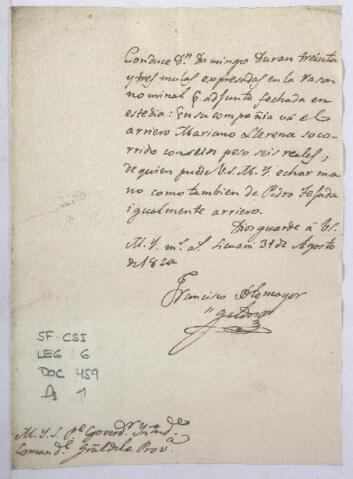 Conduce Dn. Domingo Duran treinta
y tres mulas expresadas en la rason
nominal q. adjunto fechada en
este dia: En su compañia vá el
arriero Mariano Llerena soco-
rrido con un peso seis reales,
de quien puede V.S.M.Y. echar ma-
no como tambien de Pedro Tejada
igualmente arriero.
Dios guarde á V.S.
M.Y. ms. as. 31 de Agosto
de 1820
Francisco
SF-CSI
LEG 6
DOC 459
fs 1
M.Y.S. Pe. Governdr. Yntde.
Comande. Gral de la Prova.